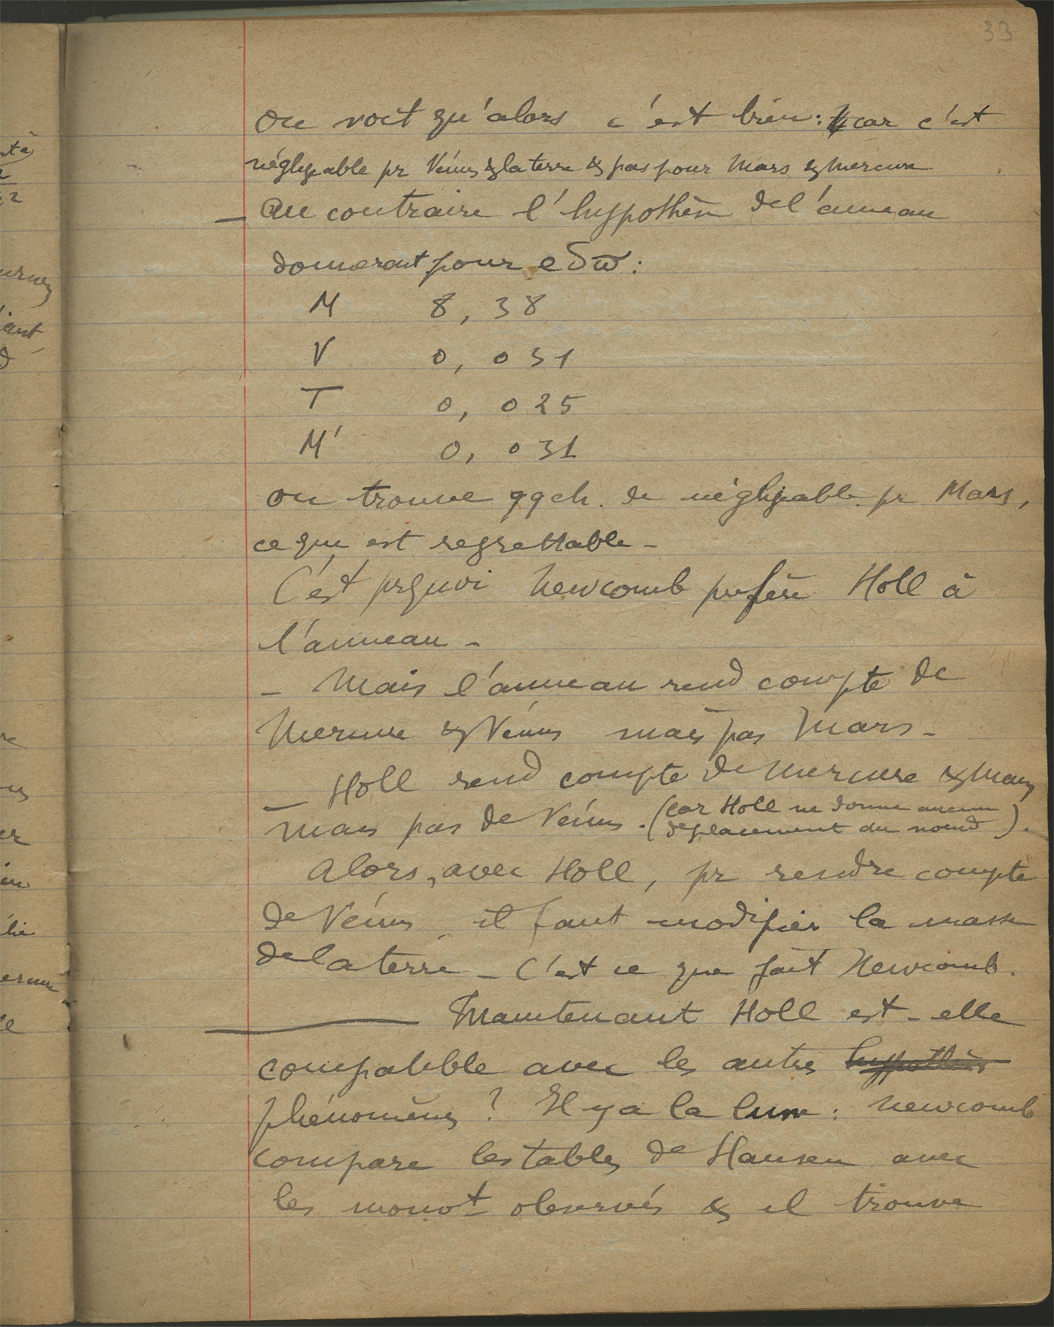 33
on voit qu'alors c'est bien : car c'est
négligeable pr Vénus & la terre & pas pour Mars & Mercure
— Au contraire l'hypothèse de l'anneau
donnerait pour e δϖ :
M 8,38
V 0,031
T 0,025
M' 0,031
on trouve qqch. de négligeable pr Mars,
ce qui est regrettable —
C'est prquoi Newcomb préfère Holl à
l'anneau —
— Mais l'anneau rend compte de
Mercure & Vénus mais pas Mars —
— Holl rend compte de Mercure & Mars
mais pas de Vénus. (car Holl ne donne aucun
déplacement du noeud).
Alors, avec Holl, pr rendre compte
de Vénus il faut modifier la masse
de la terre — C'est ce que fait Newcomb.
Maintenant Holl est-elle
compatible avec les autres hypothèses
phénomènes ? Il y a la lune : Newcomb
compare les tables de Hansen avec
les mouvts observés & il trouve